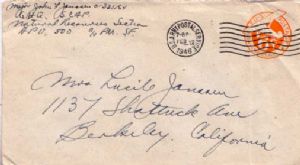 Major John F. Janssen
GHQ, SCAP
Natural Resources Section
A.P.O. 500 % P.M. S.F.
U.S. ARMY POSTAL SERVICE
1946
Mrs Lucile Janssen
1137 Shattuck Ave
Berkeley, California